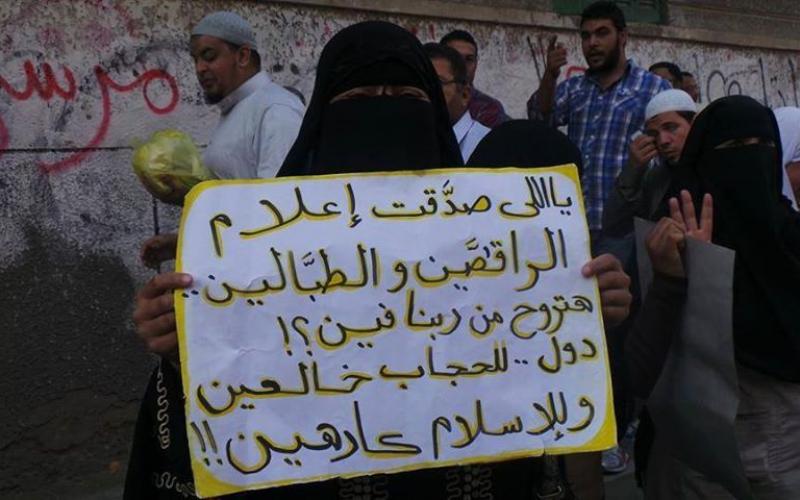 مرسي
يااللى صدَّقت إعلام
الراقصَين والطبَّالين..
هتروح من ربنا فين؟!
دول.. للحجاب خالعين
وللإسلام كارهين!!